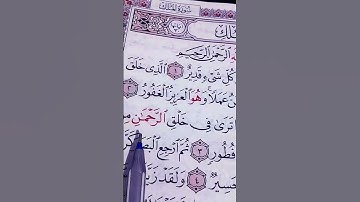 سُورَةُ الْمُلْكِ
الرَّحْمَٰنِ الرَّحِيمِ
كُلِّ شَيْءٍ قَدِيرٌ ١ الَّذِي خَلَقَ
عَمَلًا وَهُوَ الْعَزِيزُ الْغَفُورُ ٢
تَرَىٰ فِي خَلْقِ الرَّحْمَٰنِ
فُطُورٍ ٣ ثُمَّ ارْجِعِ الْبَصَرَ
٤ وَلَقَدْ